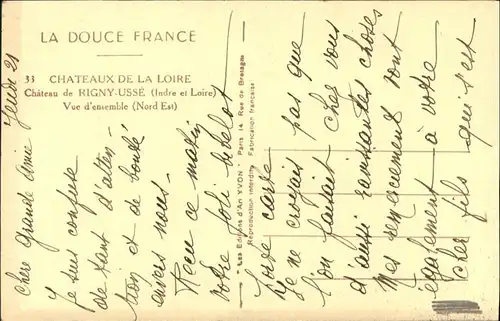 LA DOUCE FRANCE
33 CHATEAUX DE LA LOIRE
Château de RIGNY-USSÉ (Indre et Loire)
Vue d'ensemble (Nord Est)
"Les Editions d'Art YVON" Paris 14 Rue de Bretagne
Reproduction interdite Fabrication française
Jeudi 21
Chère Grande Amie
Je suis confuse
de tant d'atten-
tion et de bonté
envers nous.
Reçu ce matin
votre joli bibelot
carte
Je ne croyais pas que
l'on faisait chez vous
d'aussi ravissantes choses
Mes remerciements vont
également à votre
cher fils qui s'est